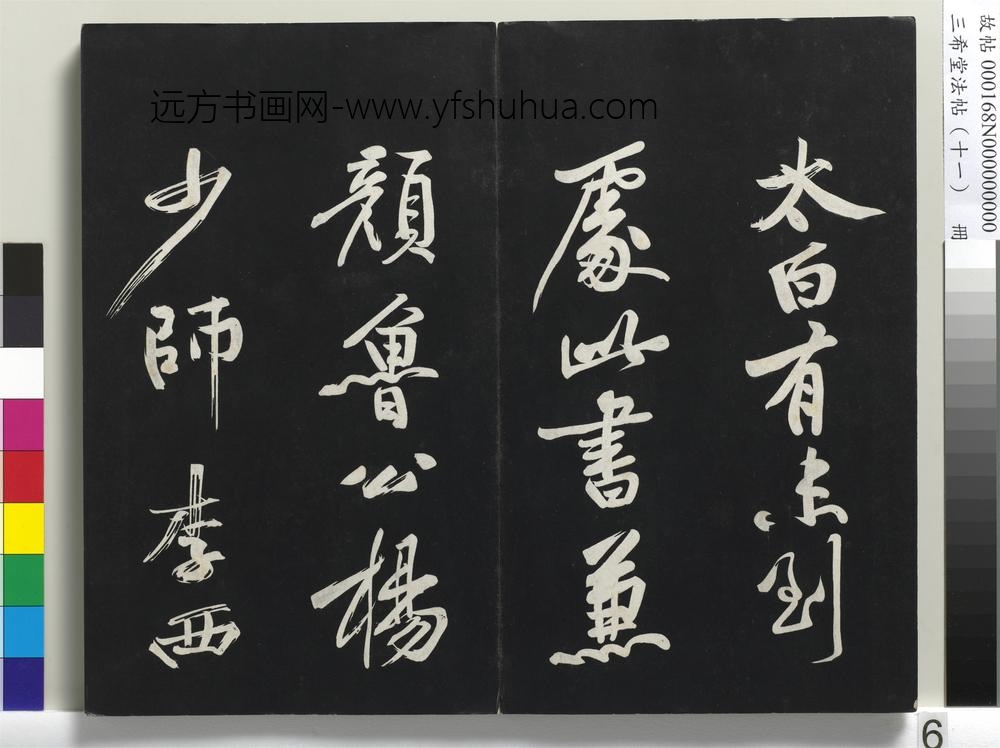 太白有未到
處此書兼
顏魯公楊
少師李西
远方书画网-www.yfshuhua.com
故帖 000168N000000000
三希堂法帖（十一） 冊
6